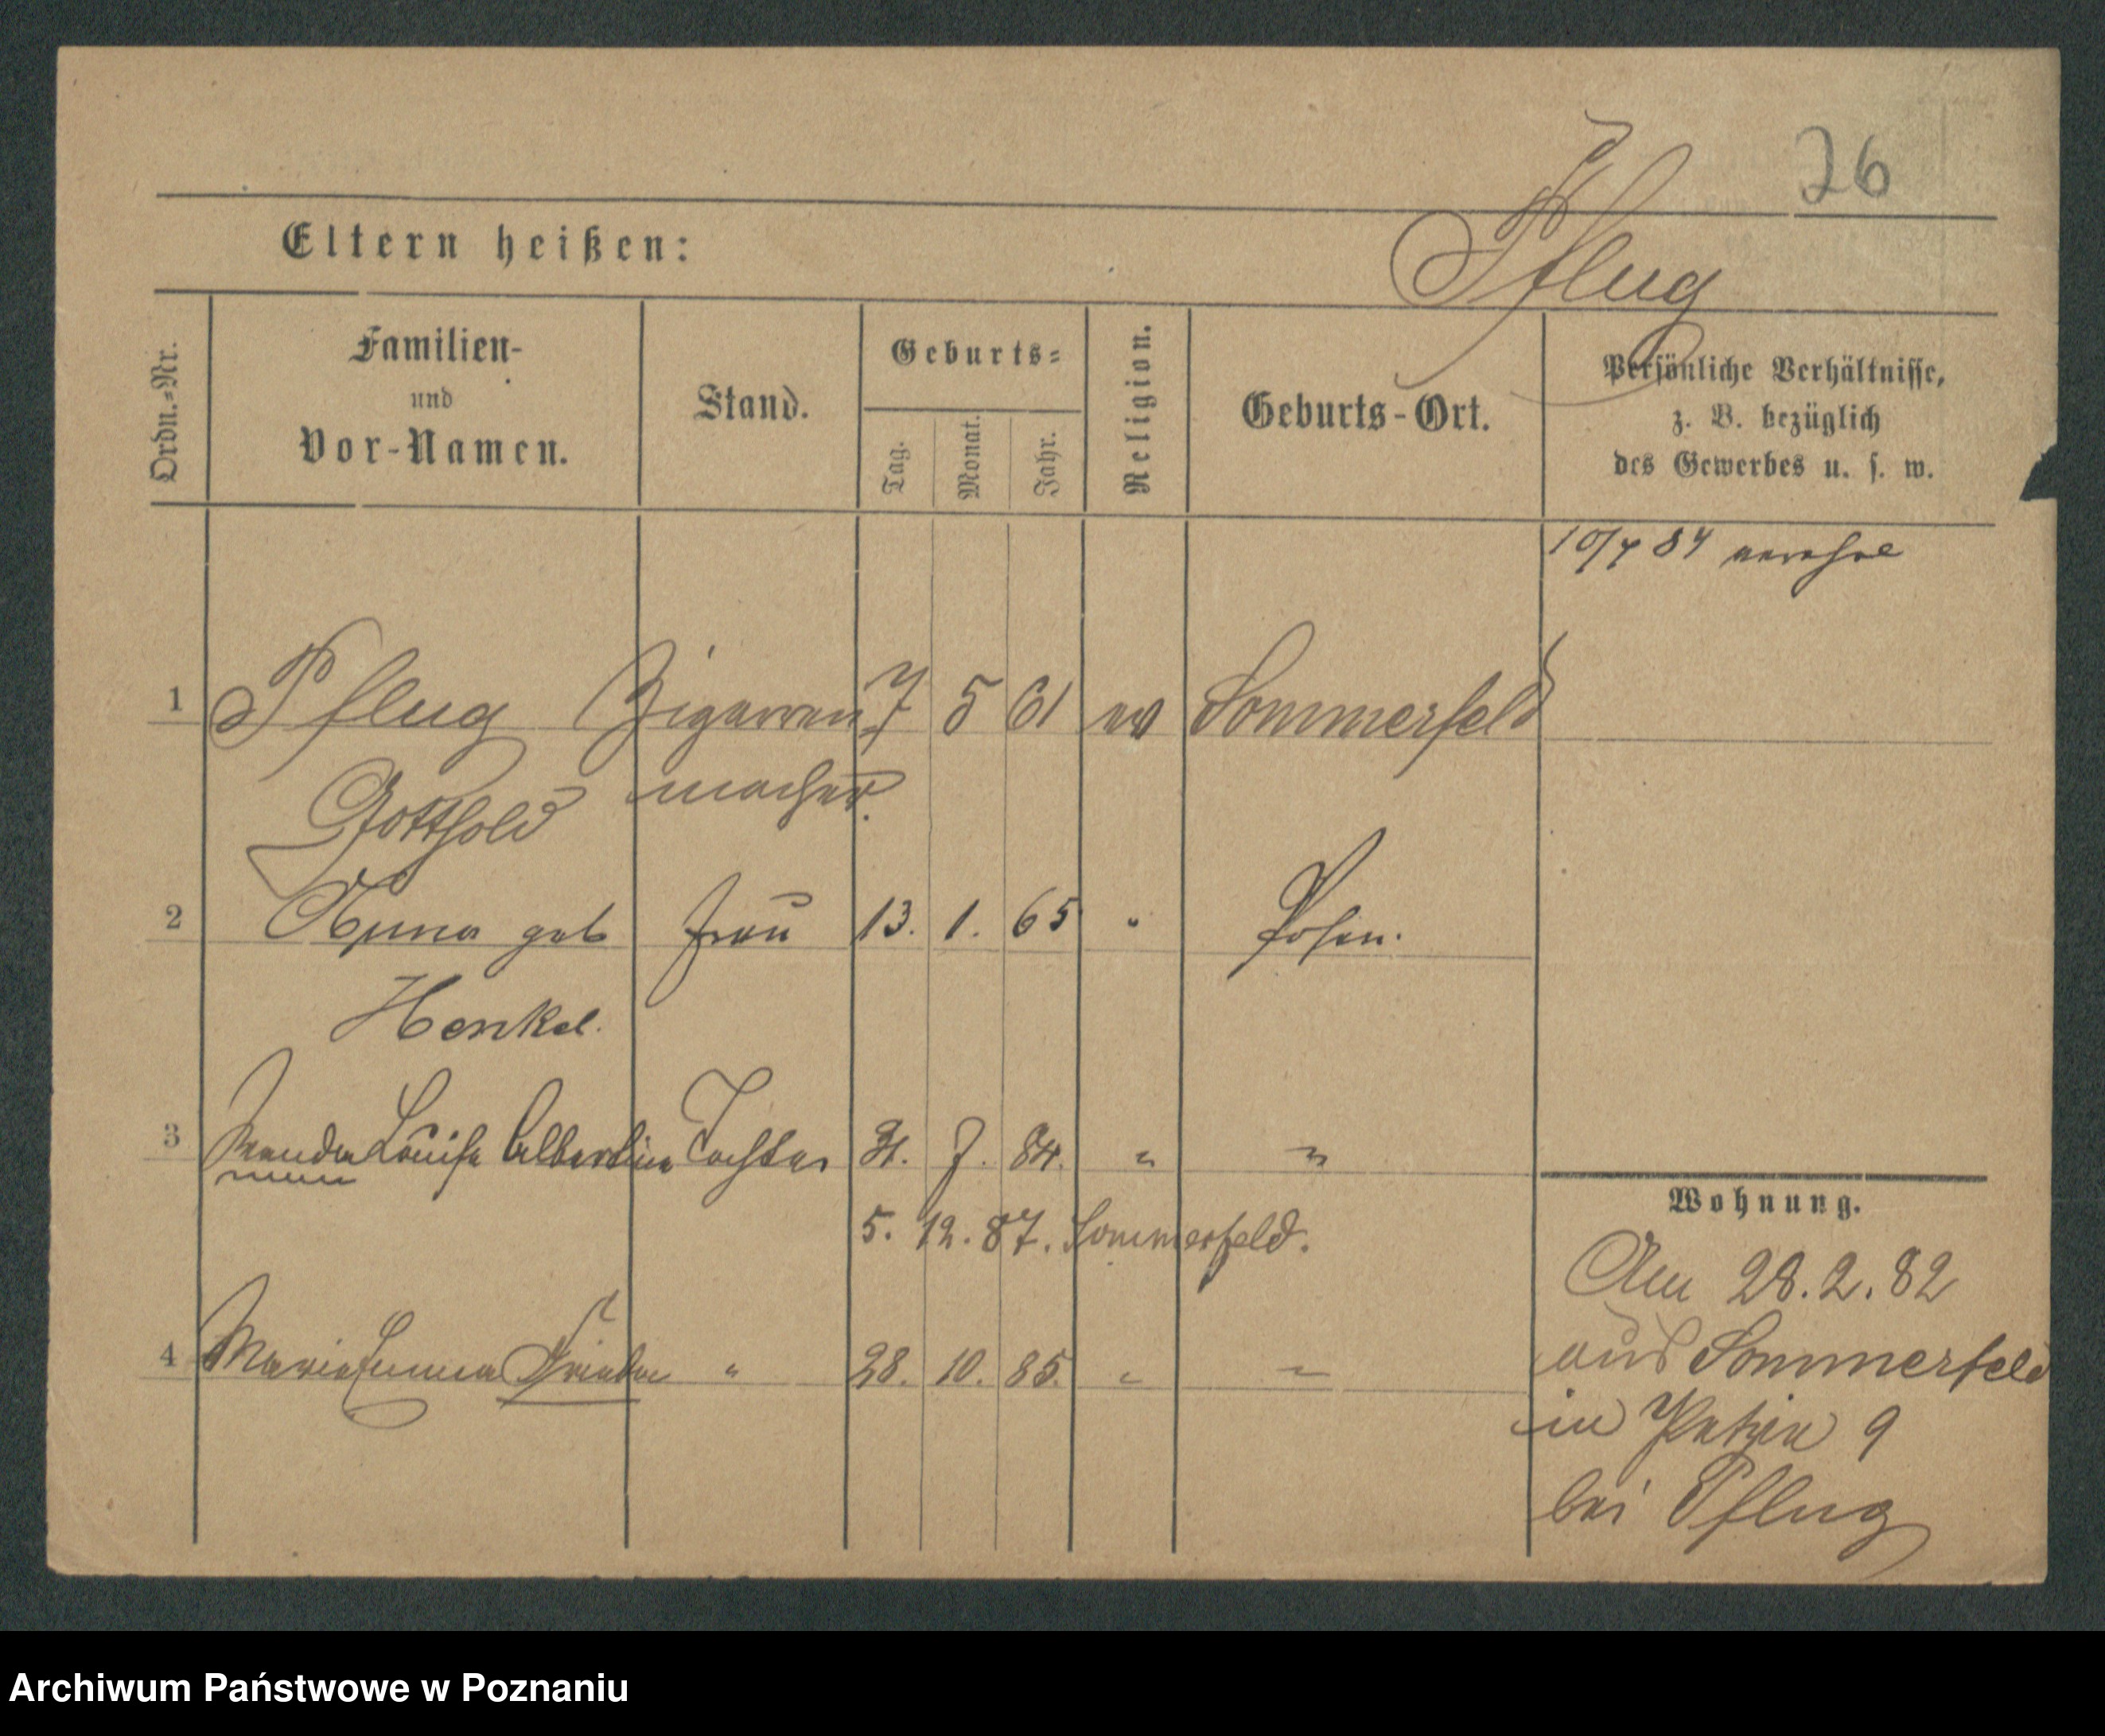 26
Pflug
Eltern heißen:
Ordn.-Nr.
Familien-
und
Vor-Namen.
Stand.
Geburts=
Tag.
Monat.
Jahr.
Religion.
Geburts-Ort.
Persönliche Verhältnisse,
z. B. bezüglich
des Gewerbes u. s. w.
10/7 84 verehel
1 Pflug Zigarren 7 5 61 ev Sommerfeld
Gotthold macher.
2 Anna geb Frau 13. 1. 65 " Posen.
Henkel.
3 Wanda Louise Albertine Tochter 31. 7. 84. " "
5. 12. 87. Sommerfeld.
4 Marie Emma Frieda " 28. 10. 85. " "
Wohnung.
Am 28.2.82
aus Sommerfeld
in 9
bei Pflug
Archiwum Państwowe w Poznaniu